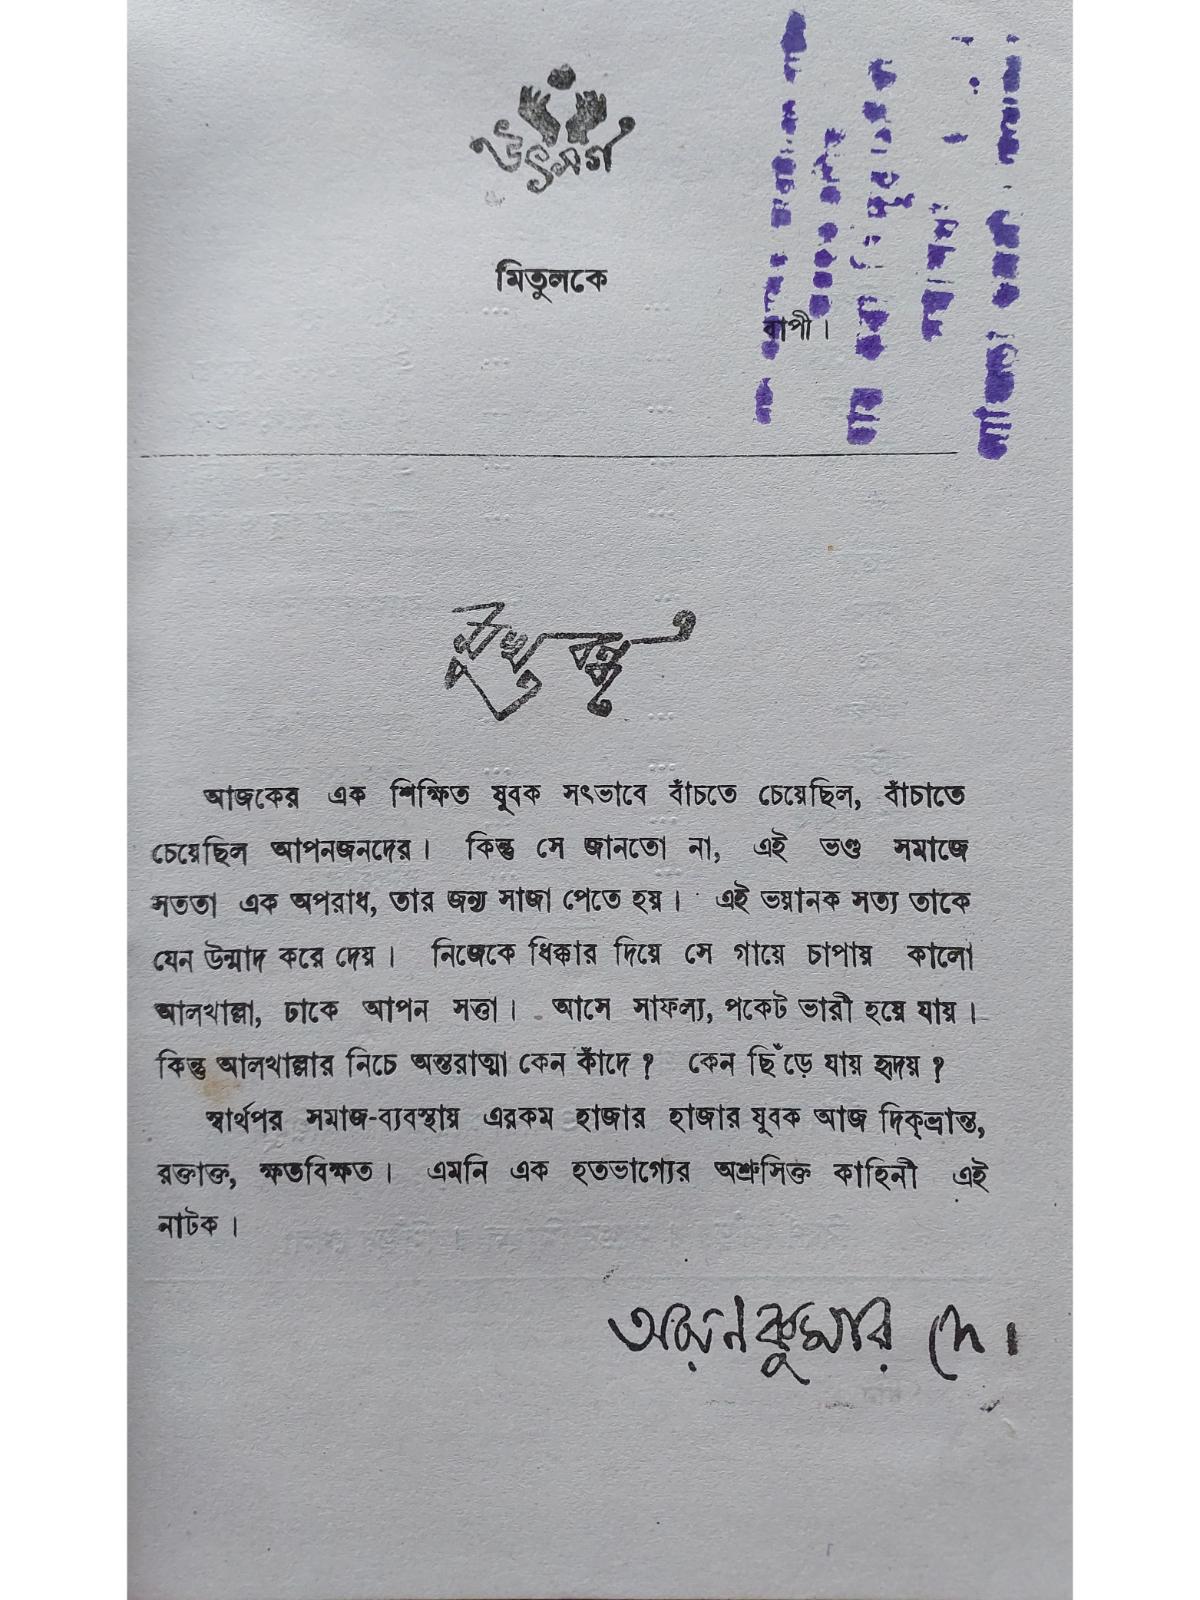 উৎসর্গ
মিতুলকে
বাপী।
মুখবন্ধ
আজকের এক শিক্ষিত যুবক সৎভাবে বাঁচতে চেয়েছিল, বাঁচাতে
চেয়েছিল আপনজনদের। কিন্তু সে জানতো না, এই ভণ্ড সমাজে
সততা এক অপরাধ, তার জন্য সাজা পেতে হয়। এই ভয়ানক সত্য তাকে
যেন উন্মাদ করে দেয়। নিজেকে ধিক্কার দিয়ে সে গায়ে চাপায় কালো
আলখাল্লা, ঢাকে আপন সত্তা। আসে সাফল্য, পকেট ভারী হয়ে যায়।
কিন্তু আলখাল্লার নিচে অন্তরাত্মা কেন কাঁদে? কেন ছিঁড়ে যায় হৃদয়?
স্বার্থপর সমাজ-ব্যবস্থায় এরকম হাজার হাজার যুবক আজ দিক্‌ভ্রান্ত,
রক্তাক্ত, ক্ষতবিক্ষত। এমনি এক হতভাগ্যের অশ্রুসিক্ত কাহিনী এই
নাটক।
অয়নকুমার দে।